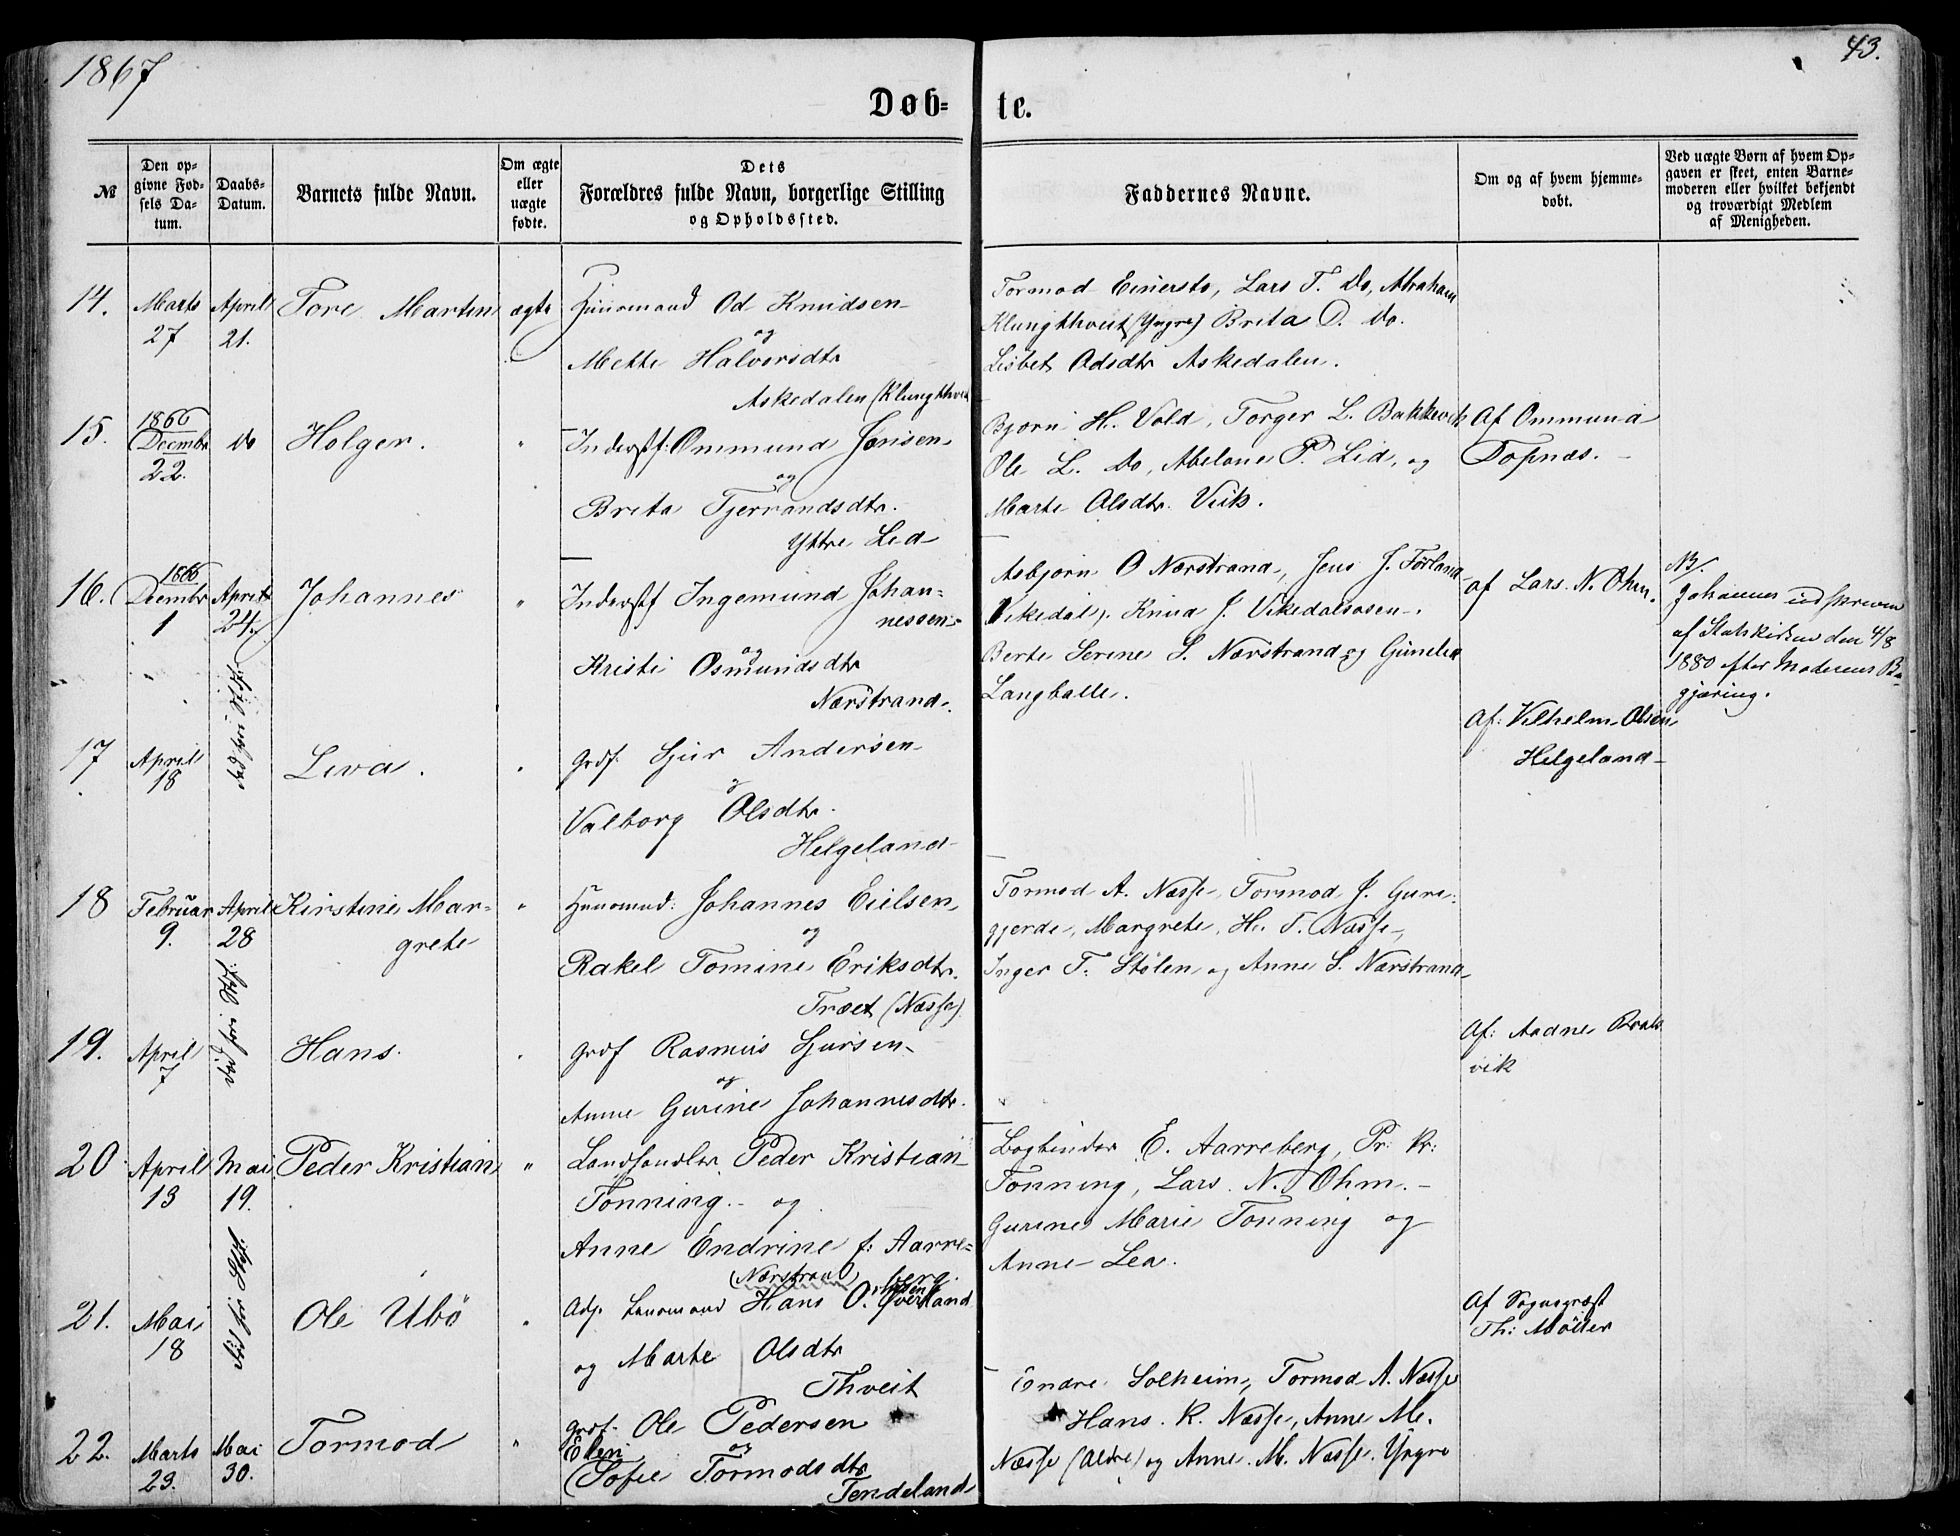 1867
43.
Døb-te.
№
Den opgivne Fødsels Datum.
Daabs-Datum.
Barnets fulde Navn.
Om ægte eller uægte fødte.
Dets Forældres fulde Navn, borgerlige Stilling og Opholdssted.
Faddernes Navne.
Om og af hvem hjemmedøbt.
Ved uægte Børn af hvem Opgaven er skeet, enten Barnemoderen eller hvilket bekjendt og troværdigt Medlem af Menigheden.
14.
Marts 27
April 21.
Tore Marten
ægte
Huusmand Od Knudsen
og
Mette Halvorsdtr
Askedalen (Klungthveit
Tormod Einersto, Lars T. Do, Abraham
Klungthveit (Yngre) Brita O. Do.
Lisbet Odsdtr Askedalen.
15.
1866 Decembr 22.
do
Holger.
"
Inderstf: Ommund Jonsen
og
Brita Tjerrandsdtr.
Yttre Lid
Bjørn H. Vold, Torger L. Bakkevik
Ole L. Do, Abelone P. Lid, og
Marte Olsdtr. Viik.
Af Ommund
Topnæs.
16.
1866 Decembr 1
April 24.
Johannes
"
Inderstf Ingemund Johan=
nessen
og
Kristi Osmundsdtr
Nærstrand.
Asbjørn O Nærstrand, Jens J. Førland
Vikedal, Knud J. Vikedalsosen.
Berte Serine S. Nærstrand og Gunela
Langballe.
af Lars N. Ohm.
NB/.
Johannes udskreven
af Statskirken den 4/8
1880 efter Moderens Be-
gjæring.
17
April 18
død før Stdf.
Liva.
"
Grdf. Sjur Andersen
og
Valborg Olsdtr.
Helgeland
Af: Vilhelm Olsen
Helgeland
18
Februar 9.
April 28
Kirstine Mar-
grete
"
Huusmand: Johannes Eielsen
og
Rakel Tomine Eriksdtr.
Træet (Næsse)
Tormod A. Næsse, Tormod J. Gure-
gjerde, Margrete, H. T. Næsse,
Inger T. Stølen og Anne S. Nærstrand
19.
April 7
død før Stdf.
Hans.
"
Grdf Rasmus Sjursen
og
Anne Gurine Johannesdtr.
Af: Aadne
vik
20
April 13
Mai 19.
Peder Kristian
"
Landhandler Peder Kristian
Tonning. og
Anne Endrine f: Aarre=
berg.
(Nærstrand)
Bogbinder E. Aarreberg, Pr. Kr:
Tonning, Lars N. Ohm.
Gurine Marie Tonning og
Anne Lea.
21.
Mai 18
død før Stdf.
Ole Ubø
"
Adj. Lensmand Hans O. Øverland
og Marte Olsdtr
Thveit
Af Sognepræst
Th: Møller
22.
Marts 23.
Mai 30.
Tormod
"
Grdf. Ole Pedersen
og
Elen
(Sofie Tormodsdtr
Tendeland
Endre Solheim, Tormod A. Næsse
Hans. K. Næsse, Anne M.
Næsse (Ældre) og Anne. M. Næsse. Yngre